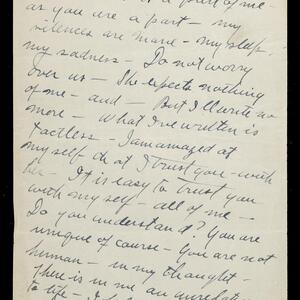 a part of me -
as you are a part - my
silences are more - my sleep,
my sadness - Do not worry
over us - She expects nothing
of me - and - But I'll write no
more - What I've written is
tactless - I am amazed at
myself that I trust you - with
her - It is easy to trust you
with myself - all of me -
Do you understand? You are
unique of course - You are not
human - in my thought -
There is in me an
to life -